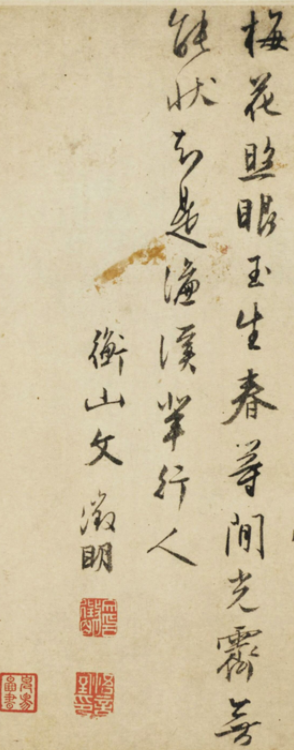 梅花照眼玉生春等閒光霽無
能状知是濂溪輩行人
衡山文徵明